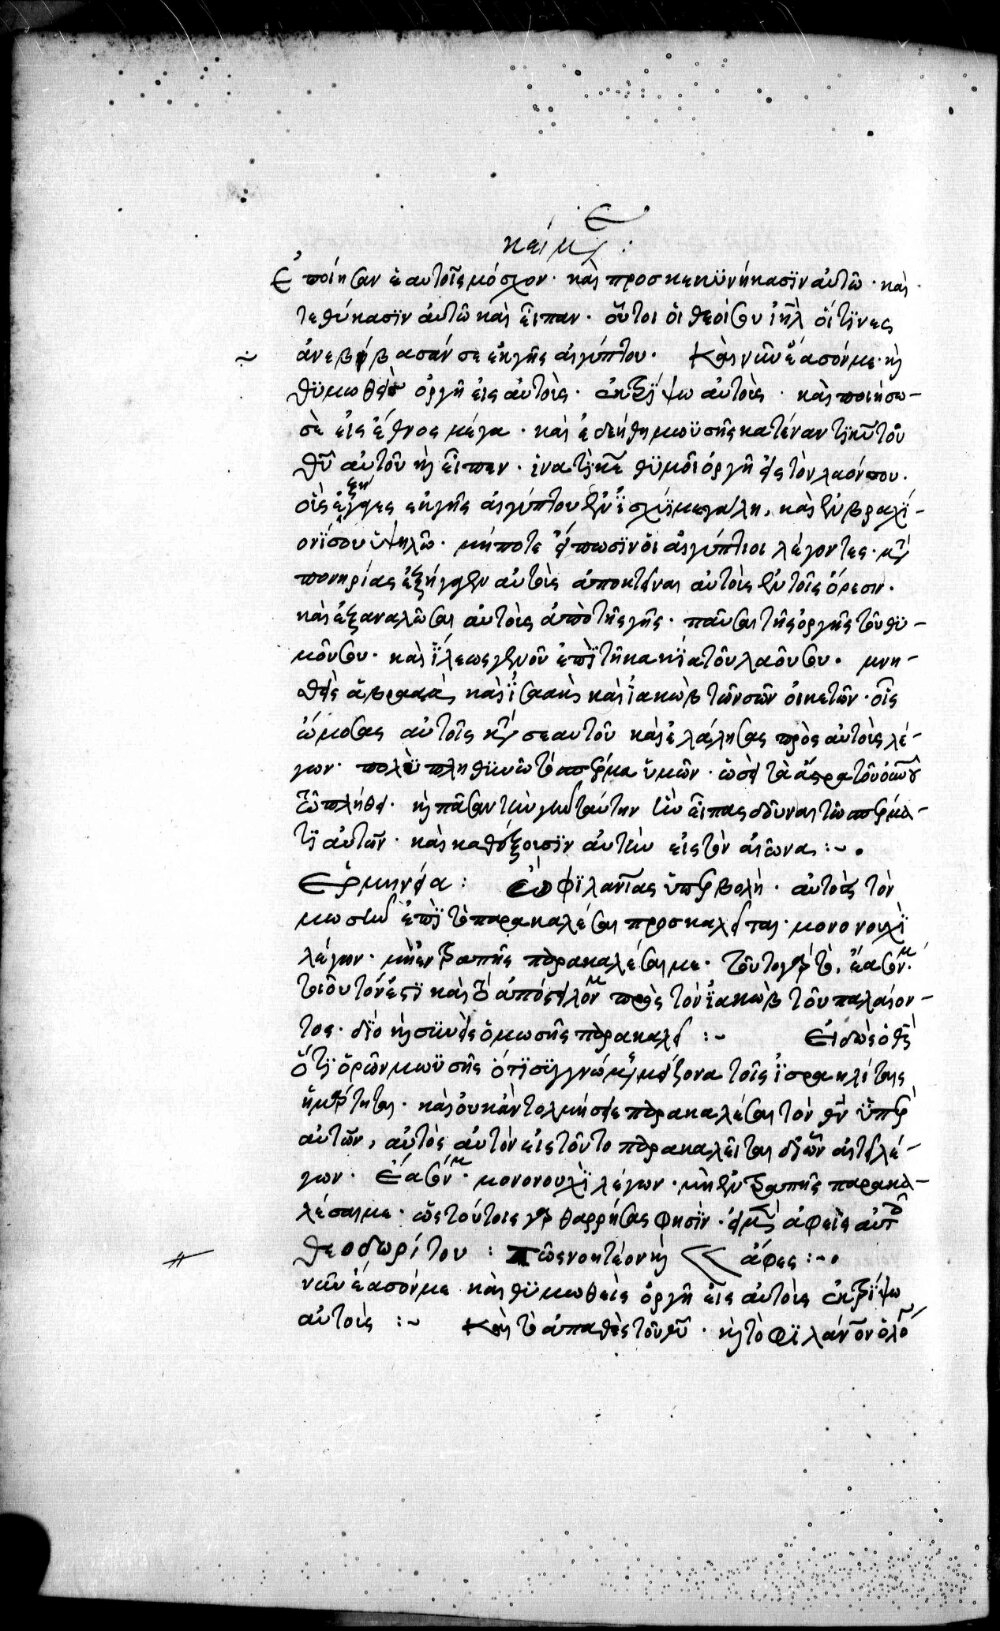 κείμε :
Ἐποίησαν ἑαυτοῖς μόσχον · καὶ προσκεκϋνήκασϊν αὐτῶ · καὶ
τεθύκασϊν αὐτῶ καὶ εἶπαν · οὗτοι οἱ θεοί σου ἰηλ οἵτϊνες
ἀνεβίβασάν σε ἐκ γῆς αἰγύπτου · Καὶ νῦν ἔασόν με · κὶ
θϋμωθεὶς ὀργῆ εἰς αὐτοὺς · ἐκτρίψω αὐτοὺς · καὶ ποιήσω
σὲ εἰς ἔθνος μέγα · καὶ ἐδεήθη μωϋσῆς κατέναντϊ κυ τοῦ
θυ αὐτοῦ κὶ εἶπεν · ἱνατὶ κε θϋμοῖ ὀργῆ εἰς τὸν λαόν σου ·
οὓς ἐξήγαγες ἐκ γῆς αἰγύπτου ἐν ἰσχύϊ μεγάλη, καὶ ἐν βραχί
ονί σου ὑψηλῶ · μήποτε εἴπωσϊν οἱ αἰγύπτιοι λέγοντες · μετὰ
πονηρίας ἐξήγαγεν αὐτοὺς ἀποκτεῖναι αὐτοὺς ἐν τοῖς ὄρεσιν ·
καὶ ἐξαναλῶσαι αὐτοὺς ἀπὸ τῆς γῆς · παῦσαι τῆς ὀργῆς τοῦ θϋ
μοῦ σου · καὶ ἵλεως γενοῦ ἐπὶ τῆ κακία τοῦ λαοῦ σου · μνη
σθεὶς ἀβραὰμ καὶ ϊσαὰκ καὶ ϊακὼβ τῶν σῶν οἰκετῶν · οἷς
ὤμοσας αὐτοῖς κατὰ σεαυτοῦ καὶ ἐλάλησας πρὸς αὐτοὺς λέ
γων · πολὺ πληθϋνῶ τὸ σπέρμα ὑμῶν · ὡσεὶ τὰ ἄστρα τοῦ οὐνοῦ
τῶ πλήθει · κὶ πᾶσαν τὴν γῆν ταύτην ἣν εἶπας δοῦναι τῶ σπέρμα
τϊ αὐτῶν · καὶ καθέξουσϊν αὐτὴν εἰς τὸν αἰῶνα :~
Ἑρμηνεία : Ὢ φϊλανίας ὑπερβολή · αὐτὸς τὸν
μωσῆν ἐπὶ τὸ παρακαλέσαι προσκαλεῖται · μονονουχὶ
λέγων · μὴ ἐντραπῆς παρακαλέσαι με · τοῦτο γὰρ τὸ, ἔασόν με
τοιοῦτόν ἐστϊ καὶ τὸ ἀπόστειλόν με πρὸς τὸν ϊακὼβ τοῦ παλαίον
τος · διὸ κὶ σϋνεὶς ὁ μωσῆς παρακαλεῖ :~ Εἰδὼς ὁ θς
ὅτϊ ὁρῶν μωϋσῆς ὅτϊ συγγνώμης μείζονα τοῖς ϊσραηλίταις
ἡμάρτηται · καὶ οὐκ ἂν τολμήσειε παρακαλέσαι τὸν θν ὑπὲρ
αὐτῶν, αὐτὸς αὐτὸν εἰς τοῦτο παρακαλεῖται λέ
γων · ἔασόν με · μονονουχὶ λέγων · μὴ ἐντραπῆς παρακα
λέσαι με · ὡς τούτοις γὰρ θαρρήσας φησὶν · εἰ μὲν ἀφεὶς αὐτοῖς
Θεοδωρίτου : Πῶς νοητέον κὶ ἄφες :~
νῦν ἔασόν με καὶ θϋμωθεὶς ὀργῆ εἰς αὐτοὺς ἐκτρίψω
αὐτοὺς :~ Καὶ τὸ ἀπαθὲς τοῦ θυ · κὶ τὸ φϊλάνον ὅλον